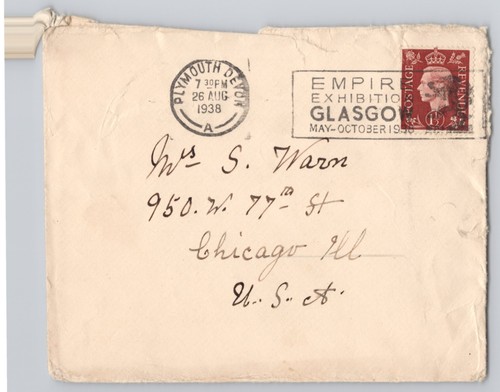 PLYMOUTH DEVON
7 30PM
26 AUG
1938
A
EMPIRE
EXHIBITION
GLASGOW
MAY-OCTOBER 1938
POSTAGE
REVENUE
1½
Mrs S. Warn
950. W. 77th St
Chicago Ill
U. S. A.